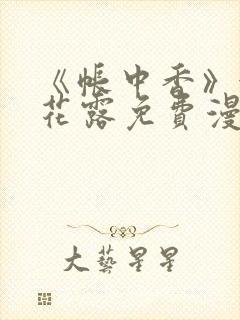 《帐中香》
花露免费漫
大艺星星